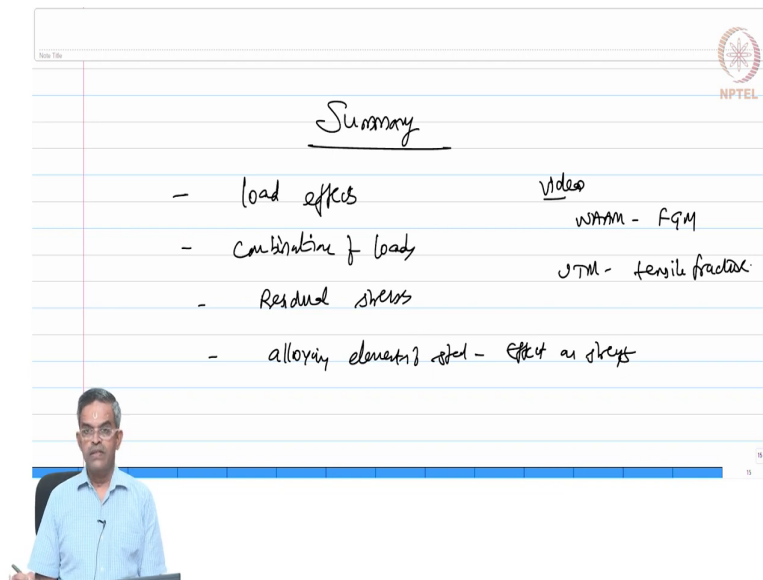 Note Title
NPTEL
Summary
- load effects
- Combination of loads
- Residual stress
- alloying elements of steel - Effect on
Video
WAAM - FGM
UTM - tensile fracture.
15
15